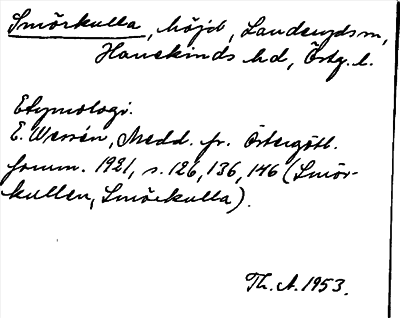 Smörkulla, höjd, Landeryds sn,
Hanekinds hd, Östg. l.
Etymologi.
E. Wessén, Medd. fr. Östergötl.
fornm. 1921, s. 126, 136, 146 (Smör-
kullen, Smörkulla).
Th. A. 1953.